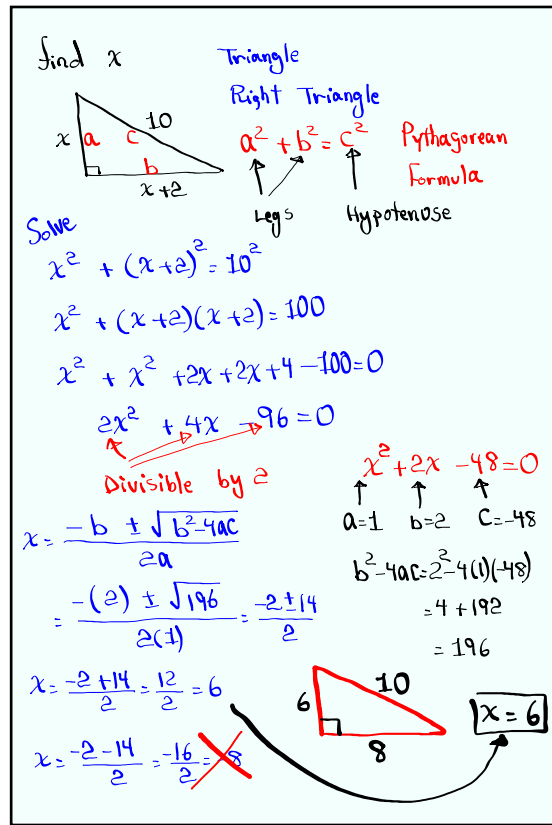 find x
Triangle
Right Triangle
x a c 10
b
x+2
a² + b² = c² Pythagorean
Formula
Legs Hypotenose
Solve
x² + (x+2)² = 10²
x² + (x+2)(x+2) = 100
x² + x² + 2x + 2x + 4 - 100 = 0
2x² + 4x - 96 = 0
Divisible by 2
x² + 2x - 48 = 0
a=1 b=2 C=-48
x = (-b ± √(b²-4ac))/2a
b²-4ac = 2²-4(1)(-48)
= 4 + 192
= 196
= (-(2) ± √196)/2(1) = (-2 ± 14)/2
x = (-2+14)/2 = 12/2 = 6
x = (-2-14)/2 = -16/2 = -8
6 10
8
x = 6